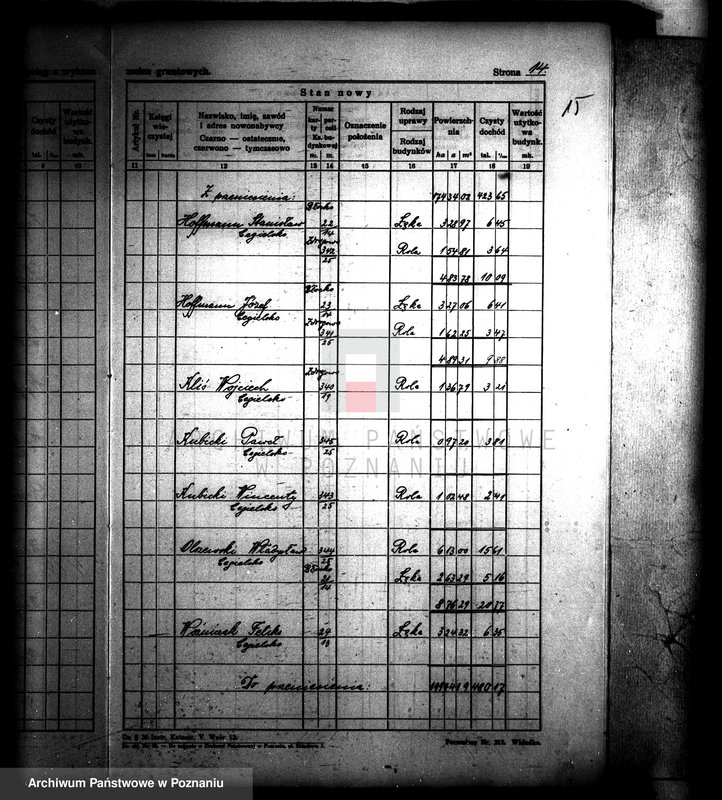 zmian gruntowych. Strona 14.
15
Stan nowy
Czysty dochód
Wartość użytkowa budynk.
tal. 1/100 mk.
9 10
Artykuł Nr.
Księgi wieczystej
tom karta
Nazwisko, imię, zawód i adres nowonabywcy
Czarno — ostateczne, czerwono — tymczasowo
Numer
karty parceli
Ks. budynkowej
Nr. lit.
Oznaczenie położenia
Rodzaj uprawy
Rodzaj budynków
Powierzchnia
ha a m²
Czysty dochód
tal. 1/100
Wartość użytkowa budynk.
mk.
11 12 13 14 15 16 17 18 19
Z przeniesienia: 423 65
Hoffmann Stanisław 22/14 Łąka 3 28 97 6 45
Cegielsko
342/25 Rola 1 54 81 3 64
4 83 78 10 09
Hoffmann Józef 23/14 Łąka 3 27 06 6 41
Cegielsko
341/25 Rola 1 62 25 3 47
4 89 31 9 88
Kliś Wojciech 340/19 Rola 1 36 79 3 21
Cegielsko
Kubicki Paweł 345/25 Rola 0 97 20 3 81
Cegielsko
Kubicki Wincenty 343/25 Rola 1 02 48 2 41
Cegielsko
Olszewski Władysław 344/25 Rola 6 13 00 15 61
Cegielsko
21/14 Łąka 2 63 29 5 16
8 76 29 20 77
Woźniak Feliks 24/13 Łąka 3 24 32 6 35
Cegielsko
Do przeniesienia: 480 17
ARCHIWUM PAŃSTWOWE
W POZNANIU
Do § 36 Instr. Katastr. V. Wzór 13.
Archiwum Państwowe w Poznaniu